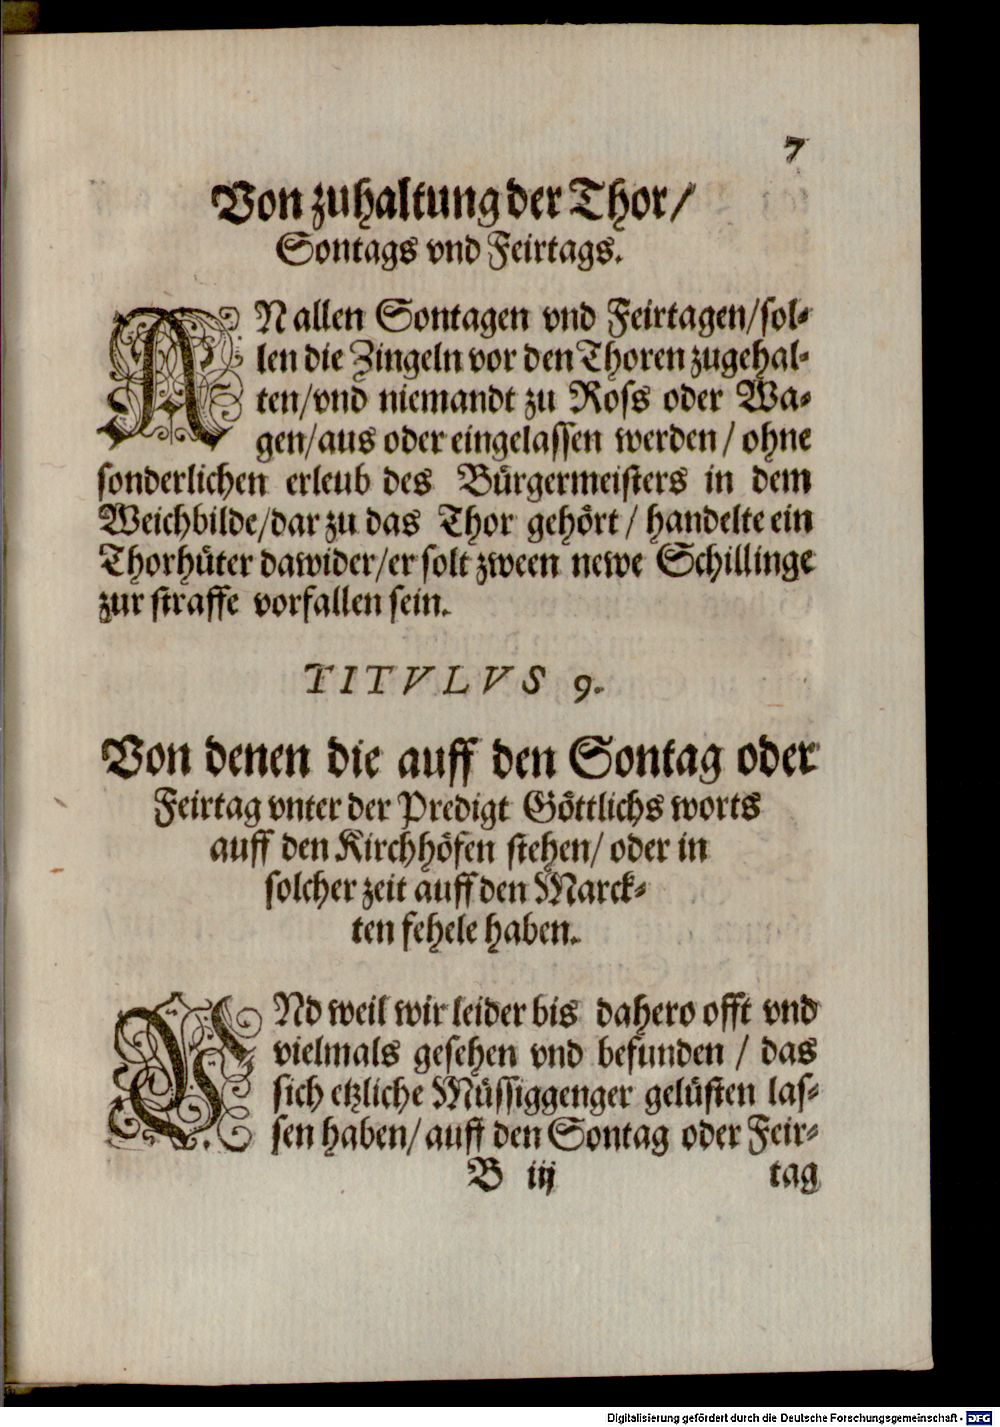 7
Von zuhaltung der Thor/
Sontags vnd Feirtags.
AN allen Sontagen vnd Feirtagen/sol-
len die Zingeln vor den Thoren zugehal-
ten/vnd niemandt zu Ross oder Wa-
gen/aus oder eingelassen werden/ ohne
sonderlichen erleub des Bürgermeisters in dem
Weichbilde/dar zu das Thor gehört/ handelte ein
Thorhüter dawider/er solt zween newe Schillinge
zur straffe vorfallen sein.
TITVLVS 9.
Von denen die auff den Sontag oder
Feirtag vnter der Predigt Göttlichs worts
auff den Kirchhöfen stehen/ oder in
solcher zeit auff den Marck-
ten fehele haben.
VNd weil wir leider bis dahero offt vnd
vielmals gesehen vnd befunden / das
sich etzliche Müssiggenger gelüsten las-
sen haben/ auff den Sontag oder Feir-
B iij tag
Digitalisierung gefördert durch die Deutsche Forschungsgemeinschaft - DFG